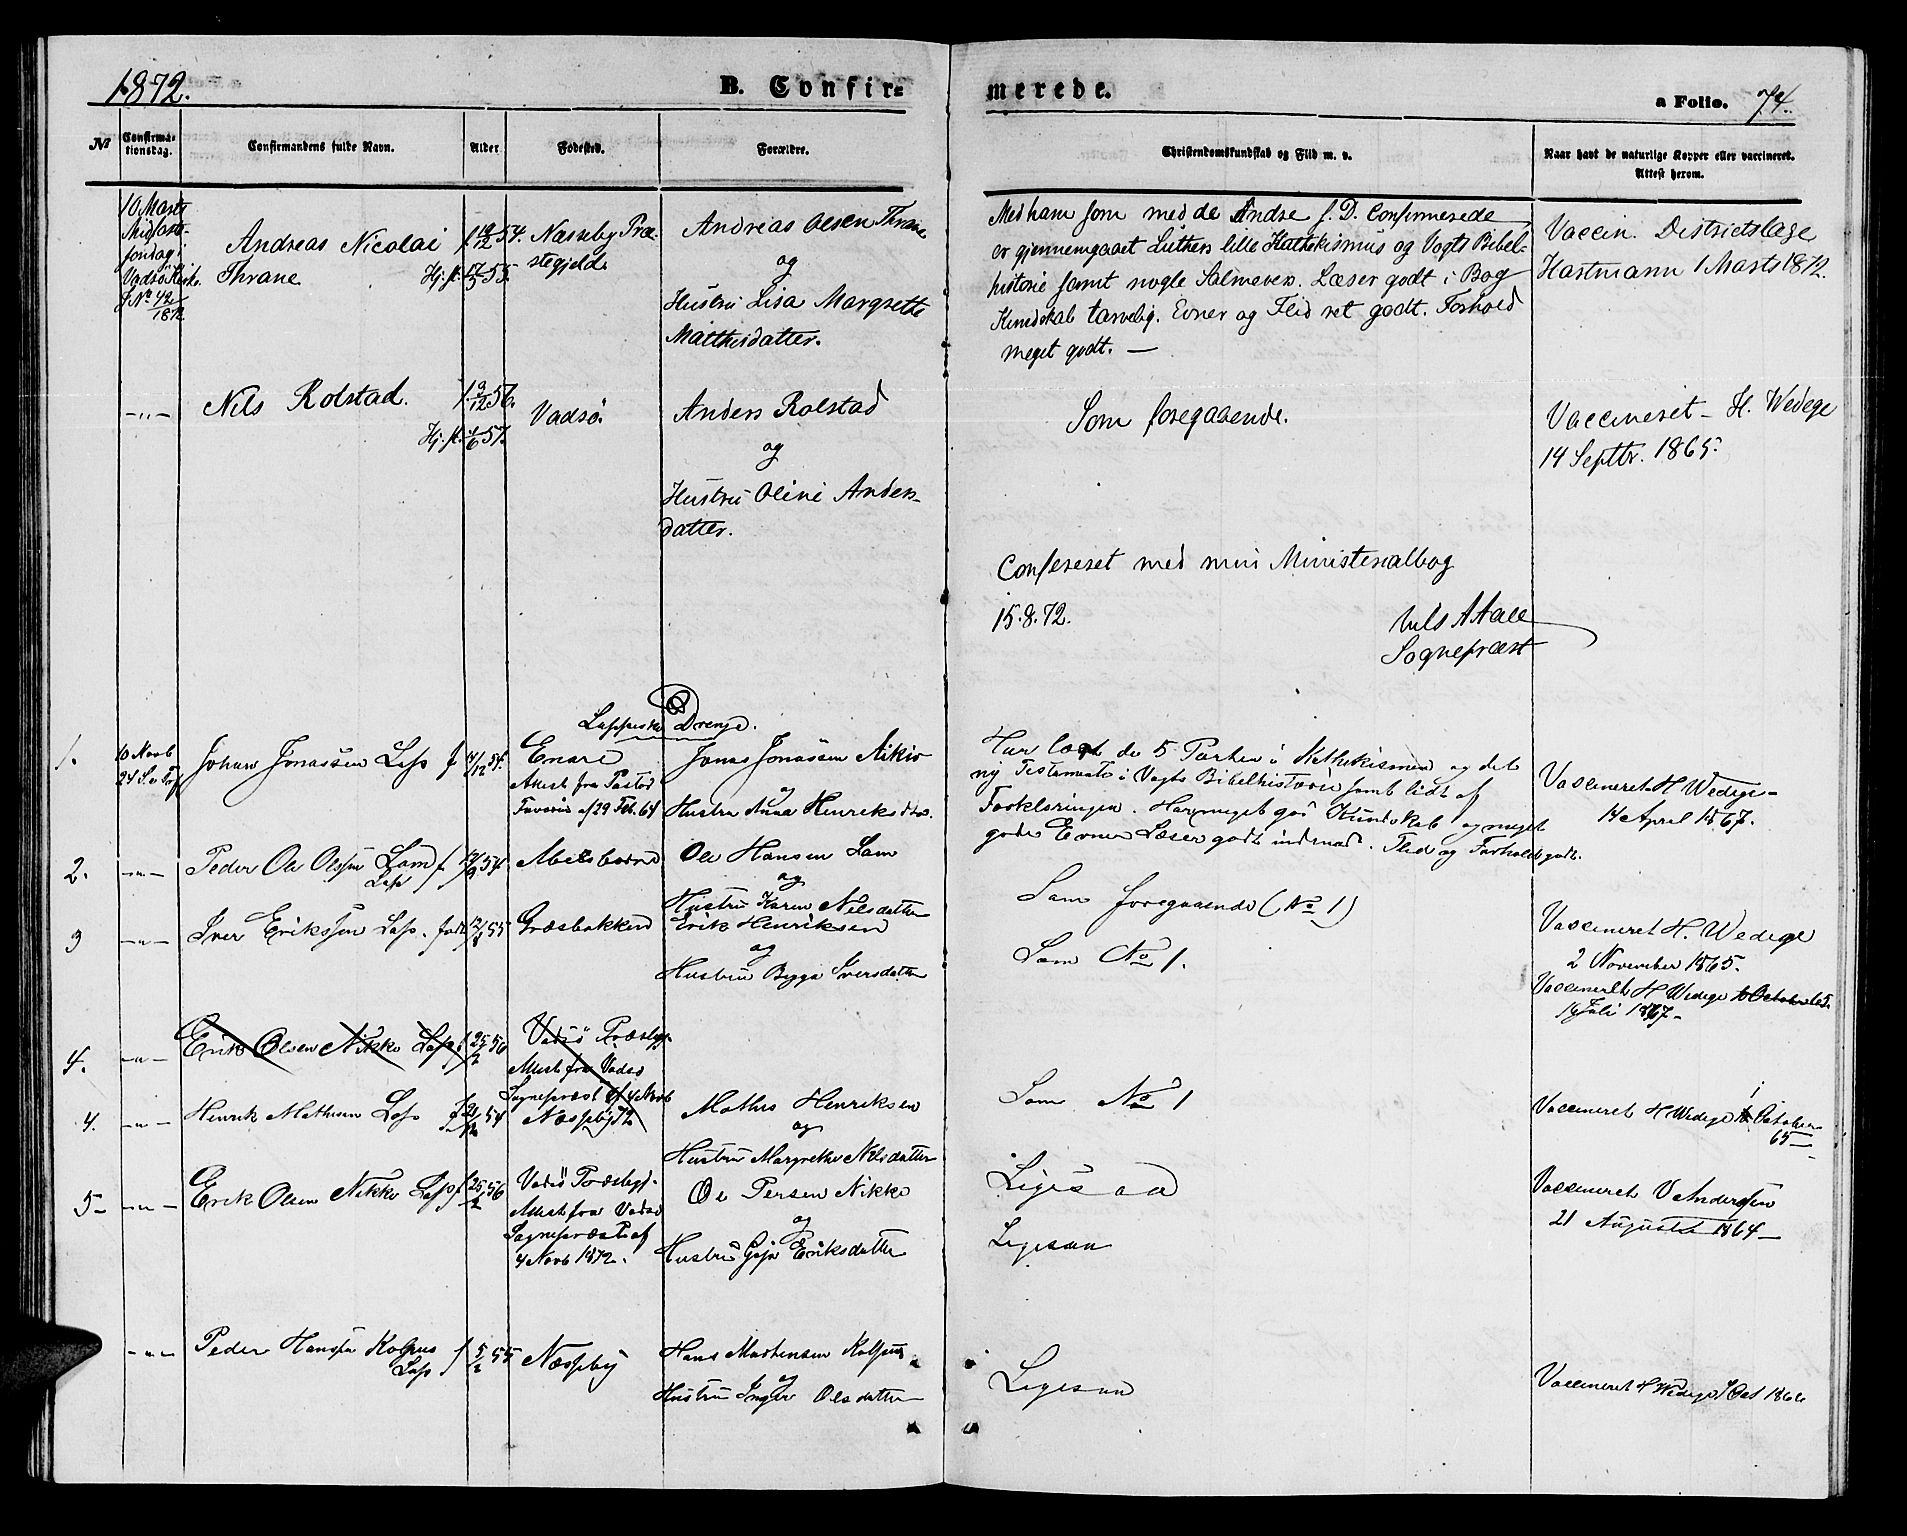 1872.
B. Confir-
merede.
a Folio. 74.
No
Confirma-
tionsdag.
Confirmandens fulde Navn.
Alder
Fødested.
Forældre.
Christendomskundskab og Flid m. v.
Naar havt de naturlige Kopper eller vaccineret.
Attest herom.
10 Marts
Midfaste-
søndag i
Vadsö Kirke.
J. No 42/1872
Andreas Nicolai
Thrane
f. 12/12 54.
Hj. f. 17/3 55.
Næsseby Præ-
stegjeld.
Andreas Olsen Thrane
og
Hustru Lisa Margrette
Matthisdatter.
Med ham som med de Andre f. D. Confirmerede
er gjennemgaaet Luthers lille Kathekismus og Vogts Bibel-
historie samt nogle Salmevers. Læser godt i Bog
Kundskab tarvelig. Evner og Flid ret godt. Forhold
meget godt. —
Vaccin. Districtslæge
Hartmann 1 Marts 1872.
—"—
Nils Rolstad.
f. 9/12 56.
Hj. f. 1/6 57.
Vadsö.
Anders Rolstad
og
Hustru Oline Anders-
datter.
Som foregaaende.
Vaccineret H. Wedege
14 Septbr. 1865.
Confereret med min Ministerialbog
15.8.72.
Nils A Aall
Sogneprest
Lappiske Drenge.
1.
10 Novb
24 S. e Tref
Johan Jonassen Lap f
11/12 54.
Enare
Attest fra Pastor
af 29 Feb. 64
Jonas Jonassen Aikio
og
Hustru Anna Henriksdtr.
Har læst de 5 Parter i Kathekismen og det
ny Testamente i Vogts Bibelhistorie samt lidt af
Forklaringen. Har meget god Kundskab og meget
gode Evner Læser godt indenad. Flid og Forhold godt.
Vaccineret H Wedege
14 April 1867.
2.
—"—
Peder Ole Olsen Lam f.
Lap
54.
Ole Hansen Lam
og
Hustru Karen Nilsdatter
Som foregaaende (No 1)
3
—"—
Iver Eriksen Lap. født
55
Græsbakken
Erik Henriksen
og
Hustru Bigga Iversdatter
Som No 1.
Vaccineret H. Wedege
2 November 1865.
Vaccineret H Wedege
Juli 1867
4.
—"—
Erik Olsen Nikko Lap f
25/2 56
Vadsö Præstegj.
Attest fra Vadsö
Sognepræst af 4 Novb
72
4.
—"—
Henrik Mathisen Lap f
54
Næsseby
Mathis Henriksen
og
Hustru Margrethe Nilsdatter
Som No 1
Vaccineret H Wedege i October
65
5
—"—
Erik Olsen Nikko Lap f
25/2 56
Vadsö Præstegj.
Attest fra Vadsö
Sognepræst af
4 Novb 1872.
Ole Persen Nikko
og
Hustru Eriksdatter
Ligesaa
Ligesaa
Vaccineret V Andersen
21 August 1864
—"—
Peder Hansen Kolpus f
Lap
5/2 55
Næsseby
Hans Mortensen Kolpus
og
Hustru Inger Olsdatter
Ligesaa
Vaccineret H Wedege Oct 1866